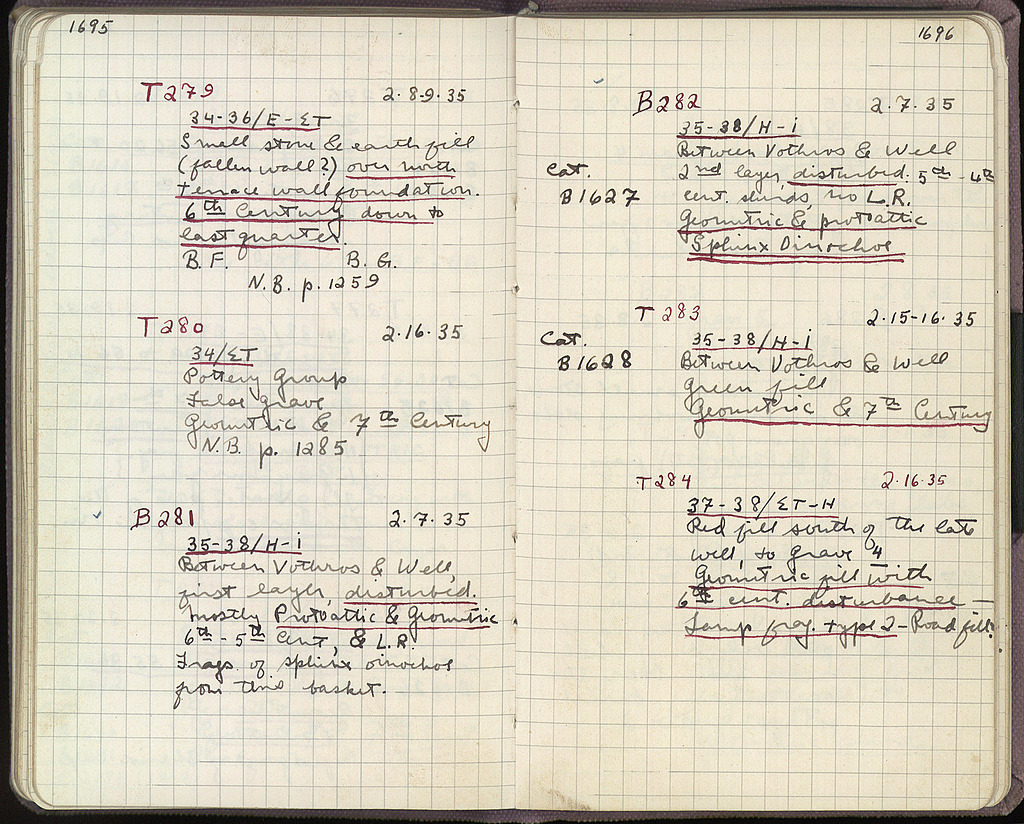 1695
T279 2·8-9·35
34-36/E-ΣT
Small stone & earth fill
(fallen wall?) over north
terrace wall foundation.
6th Century down to
last quarter.
B.F. B.G.
N.B. p. 1259
T280 2·16·35
34/ΣT
Pottery Group
False grave
Geometric & 7th Century
N.B. p. 1285
B281 2·7·35
35-38/H-i
Between Vothros & Well,
first layer, disturbed.
mostly Protoattic & Geometric
6th - 5th Cent, & L.R.
Frags. of sphinx oinochoe
from this basket.
1696
B282 2·7·35
35-38/H-i
Between Vothros & Well
Cat. 2nd layer, disturbed. 5th - 4th
B1627 cent. sherds, no L.R.
Geometric & protoattic
Sphinx Oinochoe
T283 2·15-16·35
Cat. 35-38/H-i
B1628 Between Vothros & Well
Green fill
Geometric & 7th Century
T284 2·16·35
37-38/ΣT-H
Red fill south of the late
well, to Grave 4
Geometric fill with
6th cent. disturbance —
Lamp frag. type 2 - Road fill?